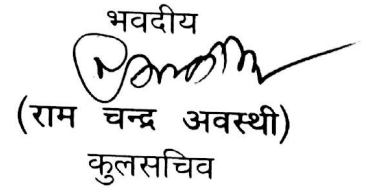 भवदीय
(राम चन्द्र अवस्थी)
कुलसचिव